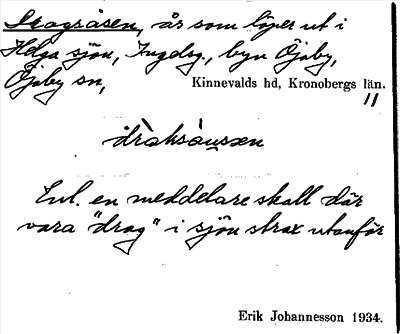 Dragsåsen, ås som löper ut i
Helga sjön, Ingdsg., byn Öjaby,
Öjaby sn, Kinnevalds hd, Kronobergs län.
11
dràksàusen
Enl. en meddelare skall där
vara "drag" i sjön strax utanför
Erik Johannesson 1934.